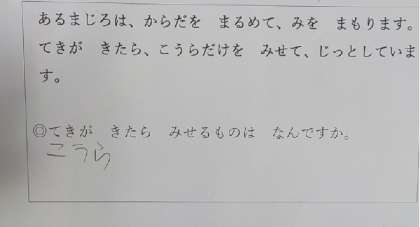 あるまじろは、からだを　まるめて、みを　まもります。
てきが　きたら、こうらだけを　みせて、じっとしていま
す。
◎てきが　きたら　みせるものは　なんですか。
こうら